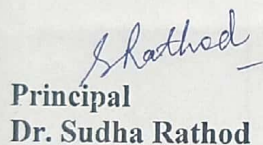 SRathod
Principal
Dr. Sudha Rathod